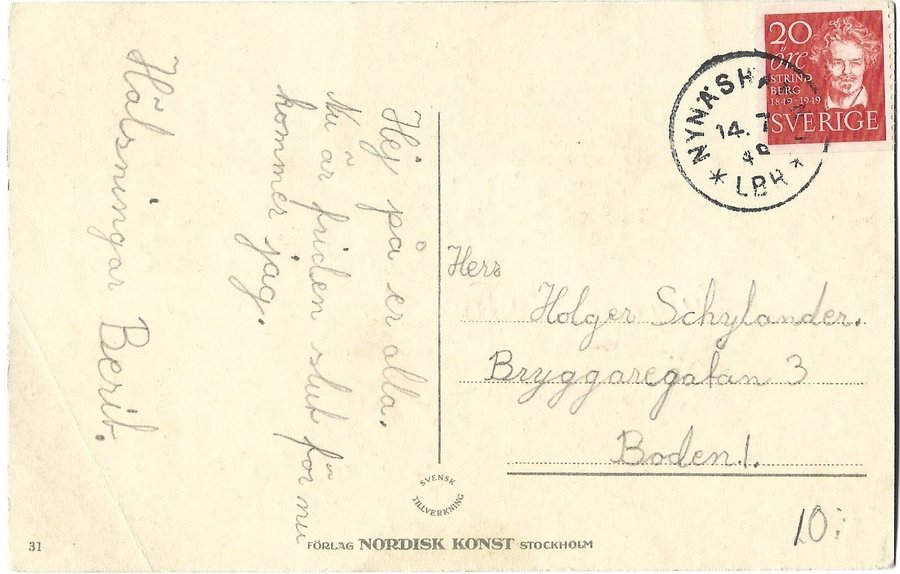 Hej på er alla.
Nu är friden slut för nu
kommer jag.
Hälsningar Berit.
20
öre
STRIND
BERG
1849-1949
SVERIGE
14. 7
49
* LBR *
Herr
Holger Schylander.
Bryggaregatan 3
Boden 1.
SVENSK
TILLVERKNING
10:-
31
FÖRLAG NORDISK KONST STOCKHOLM